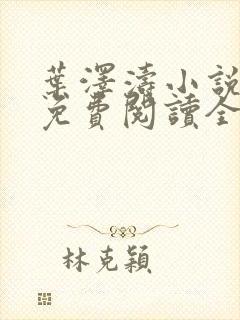 葉澤濤小說
免費閱讀全
林克穎